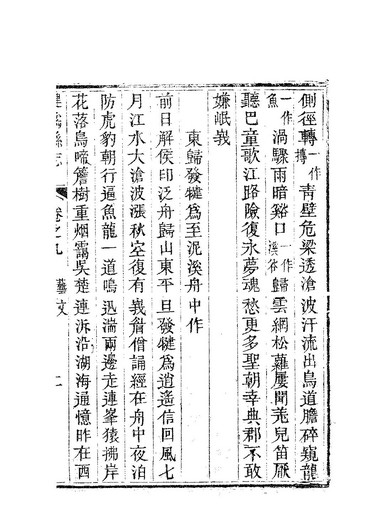 側徑轉一作摶青壁危梁透滄波汗流出鳥道膽碎窺龍
魚一作渦驟雨暗谿口一作溪谷歸雲網松蘿屢聞羌兒笛厭
聽巴童歌江路險復永夢魂愁更多聖朝幸典郡不敢
嫌岷峩
東歸發犍為至泥溪舟中作
前日解侯印泛舟歸山東平旦發犍為逍遙信回風七
月江水大滄波漲秋空復有峩眉僧誦經在舟中夜泊
防虎豹朝行逼魚龍一道鳴迅湍兩邊走連峯猿拂岸
花落鳥啼簷樹重烟靄吳楚連泝沿湖海通憶昨在西
縣志 卷之九 藝文 二